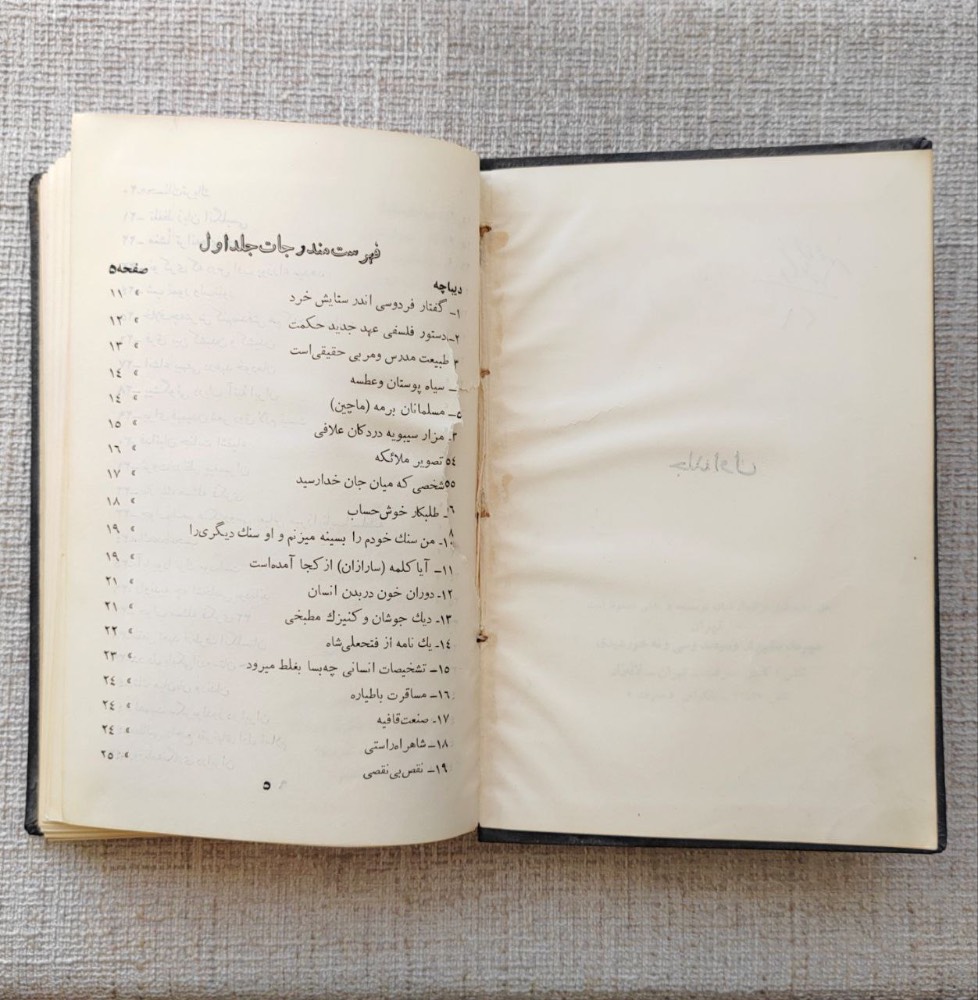 جلد اول
فهرست مندرجات جلد اول
دیباچه صفحه ۵
۱- گفتار فردوسی اندر ستایش خرد » ۱۱
۲- دستور فلسفی عهد جدید حکمت » ۱۲
۳ طبیعت مدرس ومربی حقیقی‌است » ۱۳
ـ سیاه پوستان وعطسه » ۱٤
٥ـ مسلمانان برمه (ماچین) » ۱٤
مزار سیبویه دردکان علافی » ۱۵
تصویر ملائکه » ۱۶
شخصی که میان جان خدارسید » ۱۷
طلبکار خوش‌حساب » ۱۸
۱۰- من سنك خودم را بسینه میزنم و او سنك دیگری‌را » ۱۹
۱۱- آیا کلمه (سارازان) از کجا آمده‌است » ۱۹
۱۲- دوران خون دربدن انسان » ۲۱
۱۳- دیك جوشان و کنیزك مطبخی » ۲۱
۱٤- یك نامه از فتحعلی‌شاه » ۲۲
۱۵- تشخیصات انسانی چه‌بسا بغلط میرود » ۲۳
۱۶- مسافرت باطیاره » ۲٤
۱۷- صنعت‌قافیه » ۲٤
۱۸- شاهراه‌راستی » ۲٤
۱۹- نقص‌بی‌نقصی » ۲۵
۵